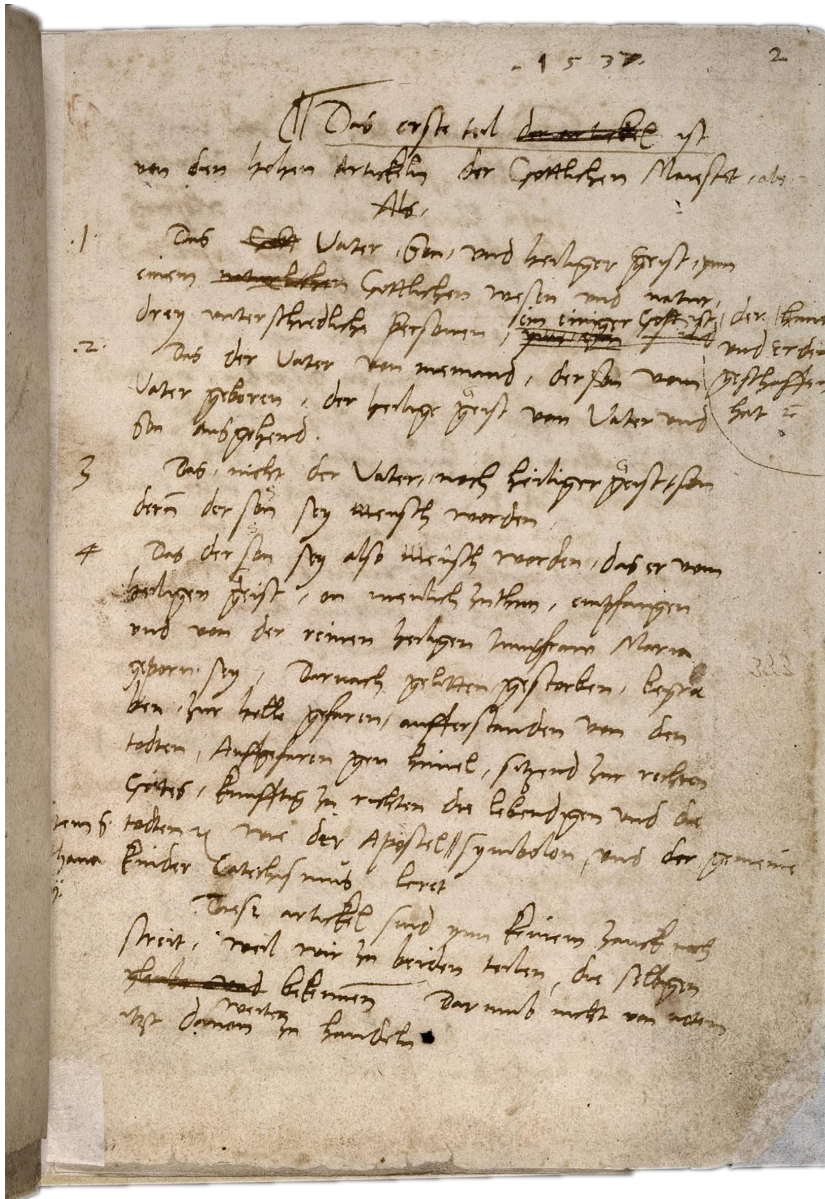 1537.
2
Das erste teil der artickel ist
von den hohen Artickeln der Gottlichen Maiestet, als
Als,
.1 Das Gott Vater, Son, und heiliger geist, ynn
einem naturlichen Gottlichen wesen und natur,
drey unterschiedliche Personen, ein einiger Gott ist, der himel
und erden
geschaffen
hat ꝛc
.2. Das der Vater von niemand, der son vom
Vater geboren, der heilige geist von Vater und
Son ausgehend.
3 Das, nicht der Vater, noch heiliger geist, son
dern der son sey mensch worden
4 Das der son sey also mensch worden, das er vom
heiligen geist, on menlich zuthun, empfangen
und von der reinen heiligen Jungfraw Maria
geporn sey, Darnach gelitten, gestorben, begra
ben, zur helle gefaren, aufferstanden von den
todten, Auffgefaren gen himel, sitzend zur rechten
Gottes, kunfftig zu richten die lebendigen und die
todten ꝛc wie der Apostel symbolon, und der gemeine
kinder Catechismus leret
Diese artickel sind ynn keinem zanck noch
streit, weil wir zu beiden teilen, die selbigen
gleuben und bekennen Darumb nicht von noten
itzt davon weiter zu handeln